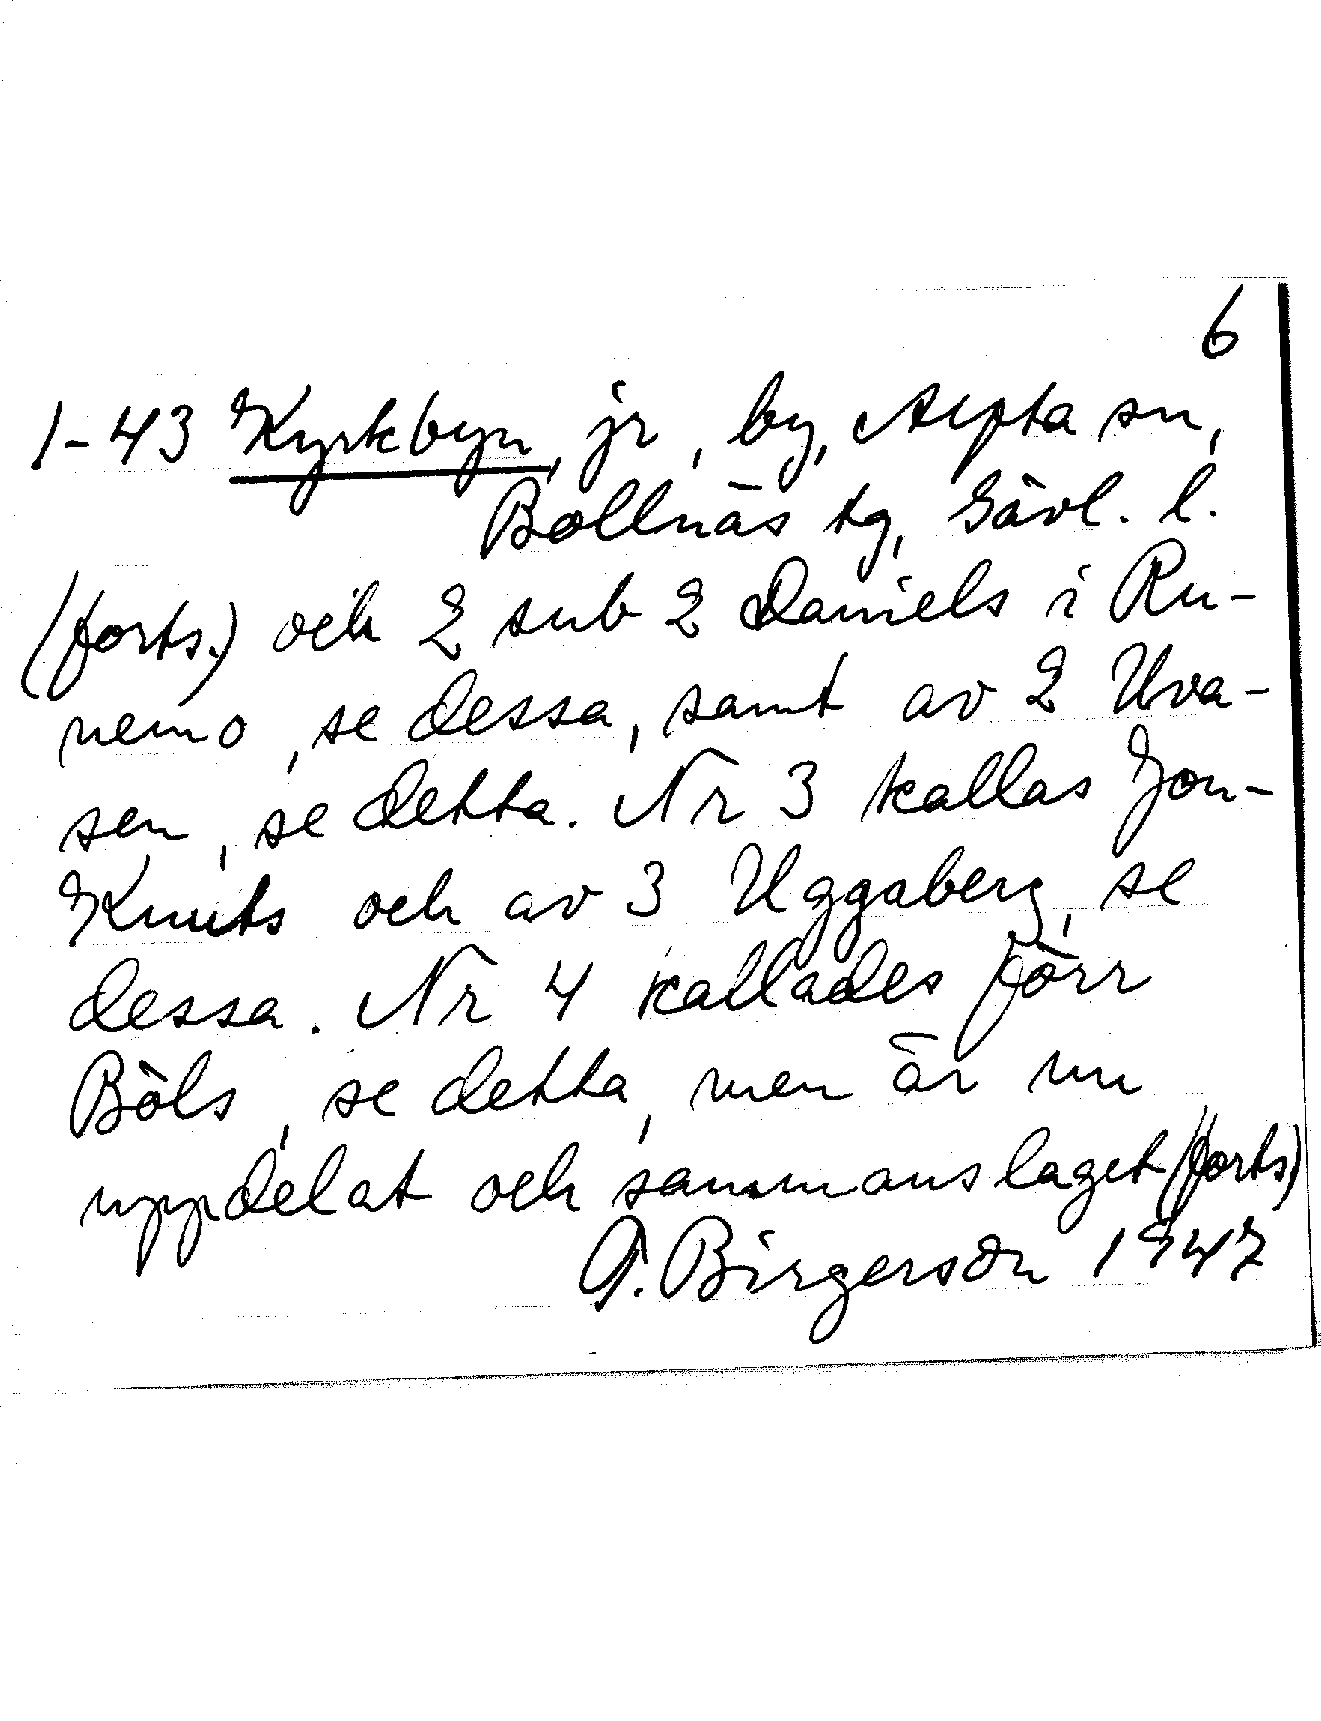 6
1-43 Kyrkbyn, jr, by, Arbrå sn,
Bollnäs tg, Gävl. l.
(forts.) och 2 sub 2 Daniels i Ru-
nemo, se dessa, samt av 2 Uva-
sen, se detta. Nr 3 kallas Jon-
Knuts och av 3 Uggaberg, se
dessa. Nr 4 kallades förr
Böls, se detta, men är nu
uppdelat och sammanslaget (forts)
G. Birgerson 1947